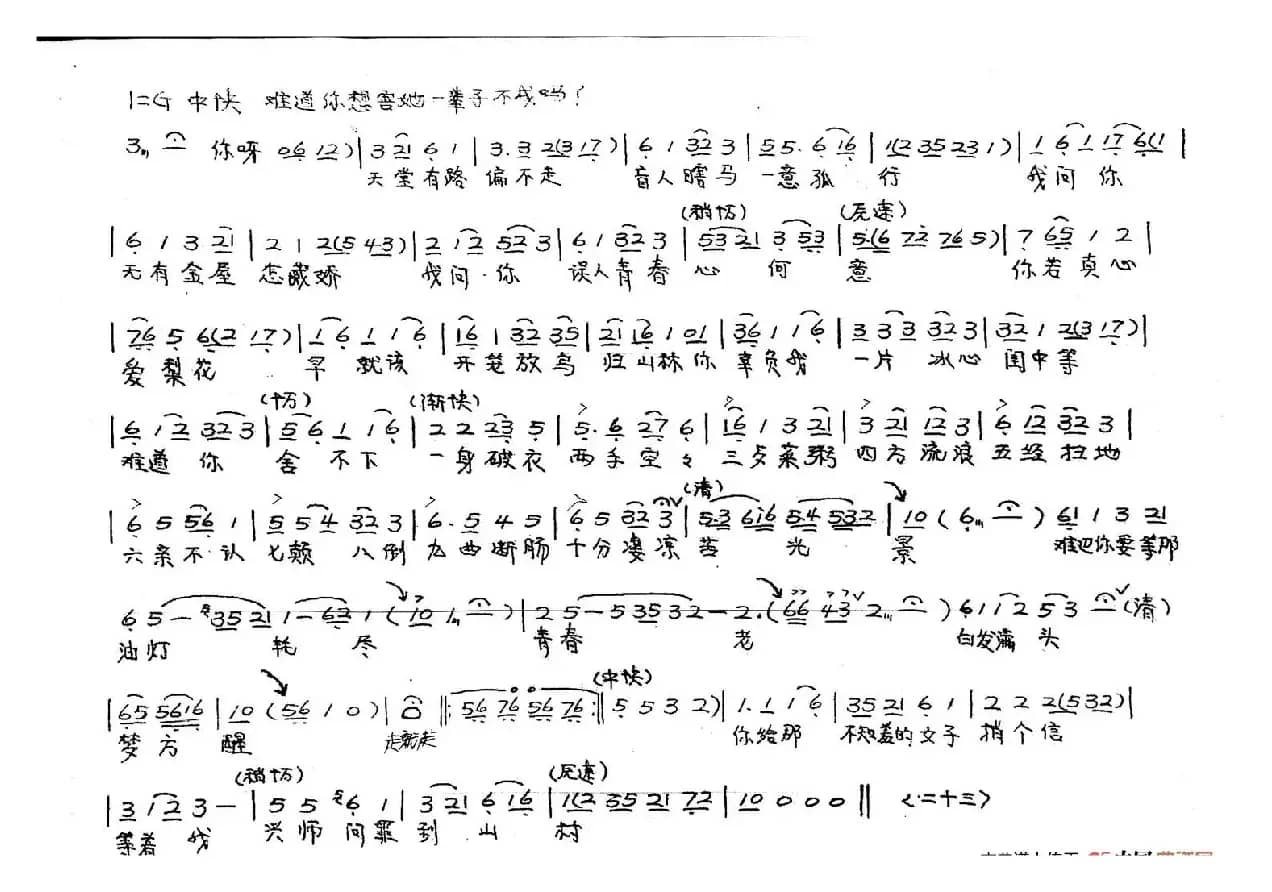 1=G 中快 难道你想害她一辈子不成吗?
3 你呀 0 6 1 2) | 3 21 6 1 | 3.3 2(3 17) | 6 1 32 3 | 55. 6 16 | 1(2 35 23 1) | 1 6 1 17 6(1 |
天堂有路 偏不走 盲人瞎马 一意孤 行 我问 你
(稍慢) (原速)
| 6 1 3 21 | 2 1 2(5 43) | 2 12 52 3 | 6 1 32 3 | 53 21 3 53 | 5.(6 72 76 5) | 7 65 1 2 |
无有金屋 怎藏娇 我问·你 误人青春 心 何 意 你若真心
| 76 5 6(2 17) | 1 6 1 1 6 | 16 1 32 35 | 21 16 1 01 | 36 1 1 6 | 3 3 3 32 3 | 32 1 2(3 17) |
爱梨花 早 就该 开笼放鸟 归山林你 辜负我 一片 冰心 闺中等
(慢) (渐快)
| 6 12 32 3 | 5 6 1 1 6 | 2 2 23 5 | 5. 6 27 6 | 16 1 3 21 | 3 21 12 3 | 6 12 32 3 |
难道 你 舍 不下 一身破衣 两手空々 三步菜粥 四方流浪 五经扫地
(清)
| 6 5 56 1 | 5 5 4 32 3 | 6. 5 4 5 | 6 5 32 3 | 53 616 54 532 | 10 ( 6 ) 61 1 3 21
六亲不认 七颠 八倒 九曲断肠 十分凄凉 苦 光 景 难把你要等那
6 5 — 35 21 1 — 62 1 ( 10 1 ) | 2 5 — 5 35 32 — 2.( 66 43 2 ) 6 1 12 53 (清)
油灯 耗 尽 青春 老 白发满 头
(中快)
| 65 5616 | 10 (56 1 0) | ||: 56 76 56 76 :|| 5 5 3 2) | 1. 1 1 6 | 35 21 6 1 | 2 2 2(5 32) |
梦方 醒 走就走 你给那 不知羞的女子 捎个信
(稍慢) (原速)
| 3 12 3 — | 5 5 6 1 | 3 21 6 16 | 1(2 35 21 72 | 10 0 0 0 || <二十三>
等着 我 兴师问罪到 山 村